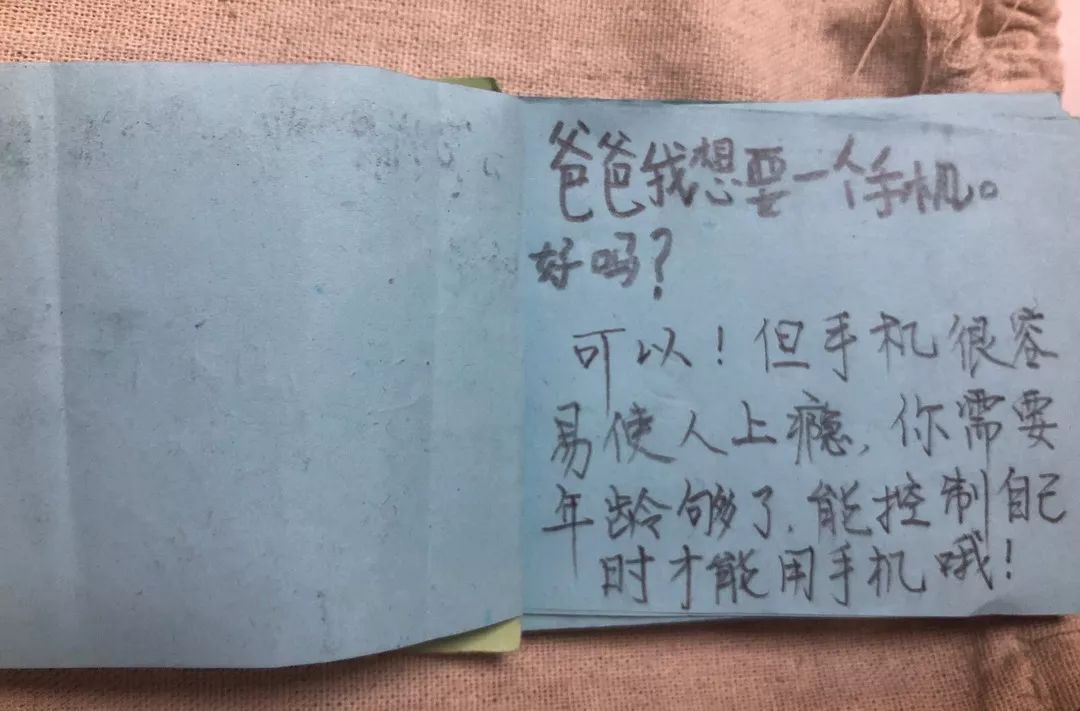 爸爸我想要一个手机。
好吗？
可以！但手机很容
易使人上瘾，你需要
年龄够了，能控制自己
时才能用手机哦！